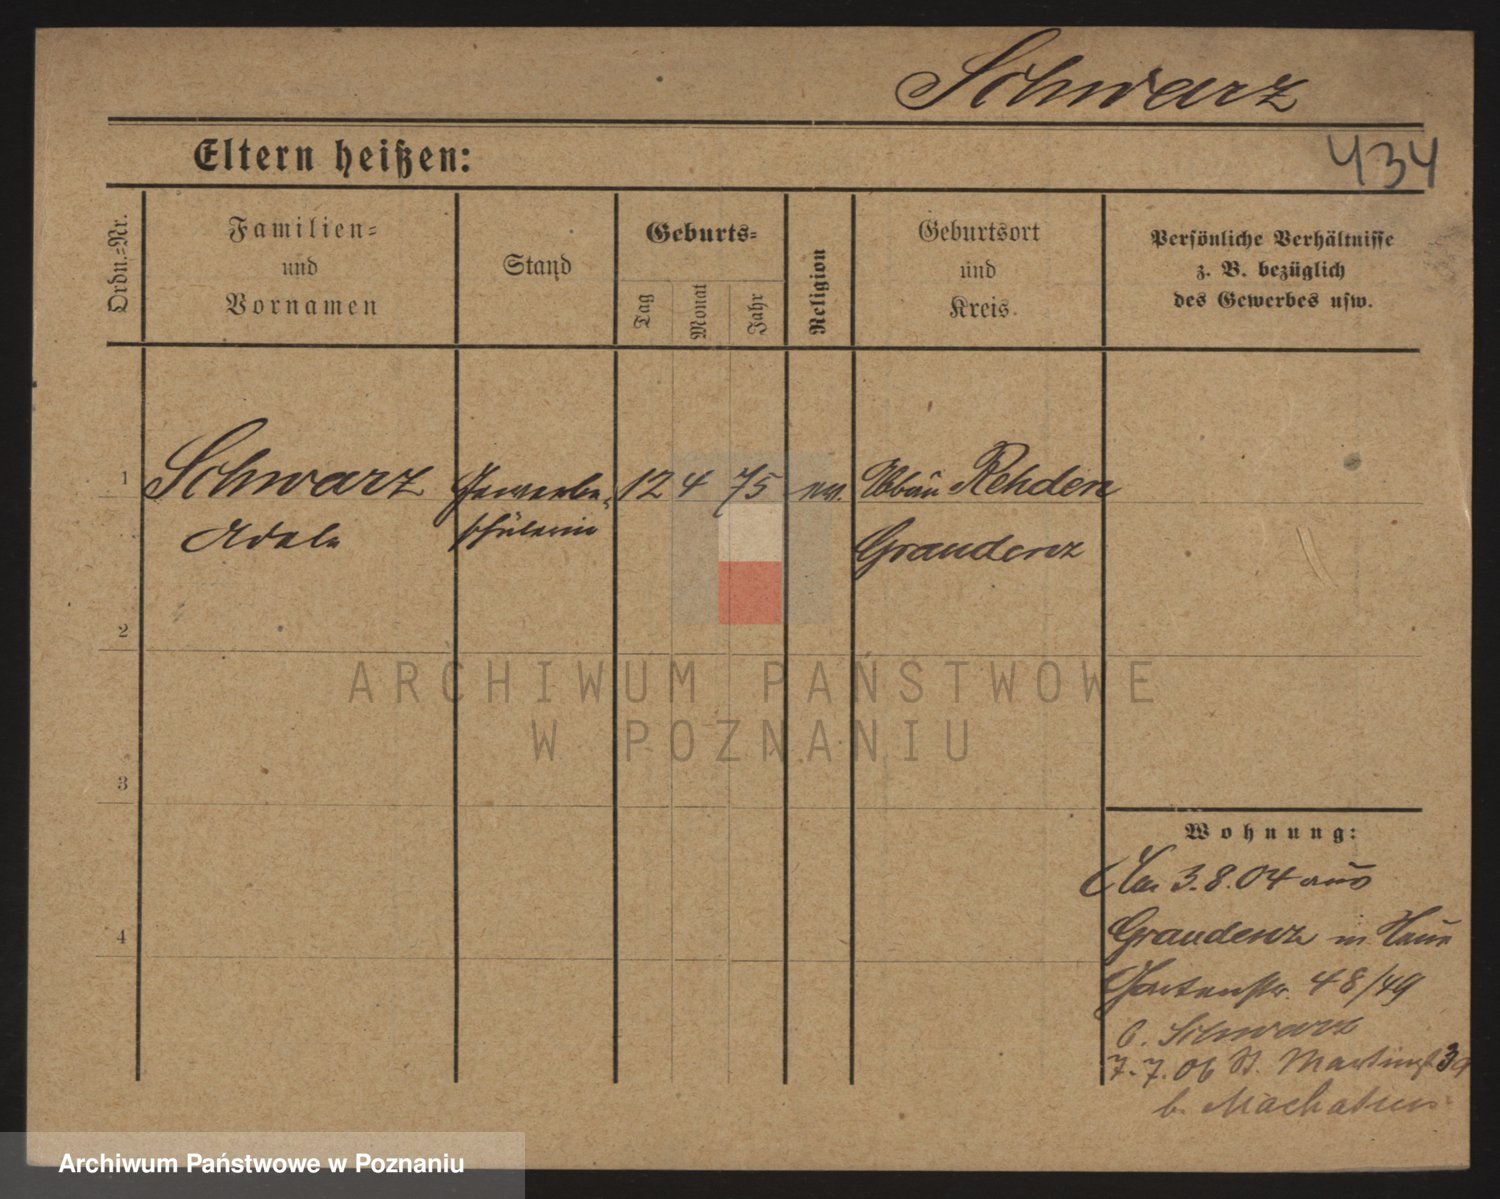 Schwarz
Eltern heißen:
434
Ordn.-Nr.
Familien-
und
Vornamen
Stand
Geburts-
Tag
Monat
Jahr
Religion
Geburtsort
und
Kreis.
Persönliche Verhältnisse
z. B. bezüglich
des Gewerbes usw.
1
Schwarz
Adele
Gewerbe-
schülerin
12
4
75
ev.
Abbau Rehden
Graudenz
2
3
4
Wohnung:
3.8.04 aus
Graudenz in
Gartenstr. 48/49
b. Schwarz
7.7.06 St. Martinst
b.
ARCHIWUM PAŃSTWOWE
W POZNANIU
Archiwum Państwowe w Poznaniu